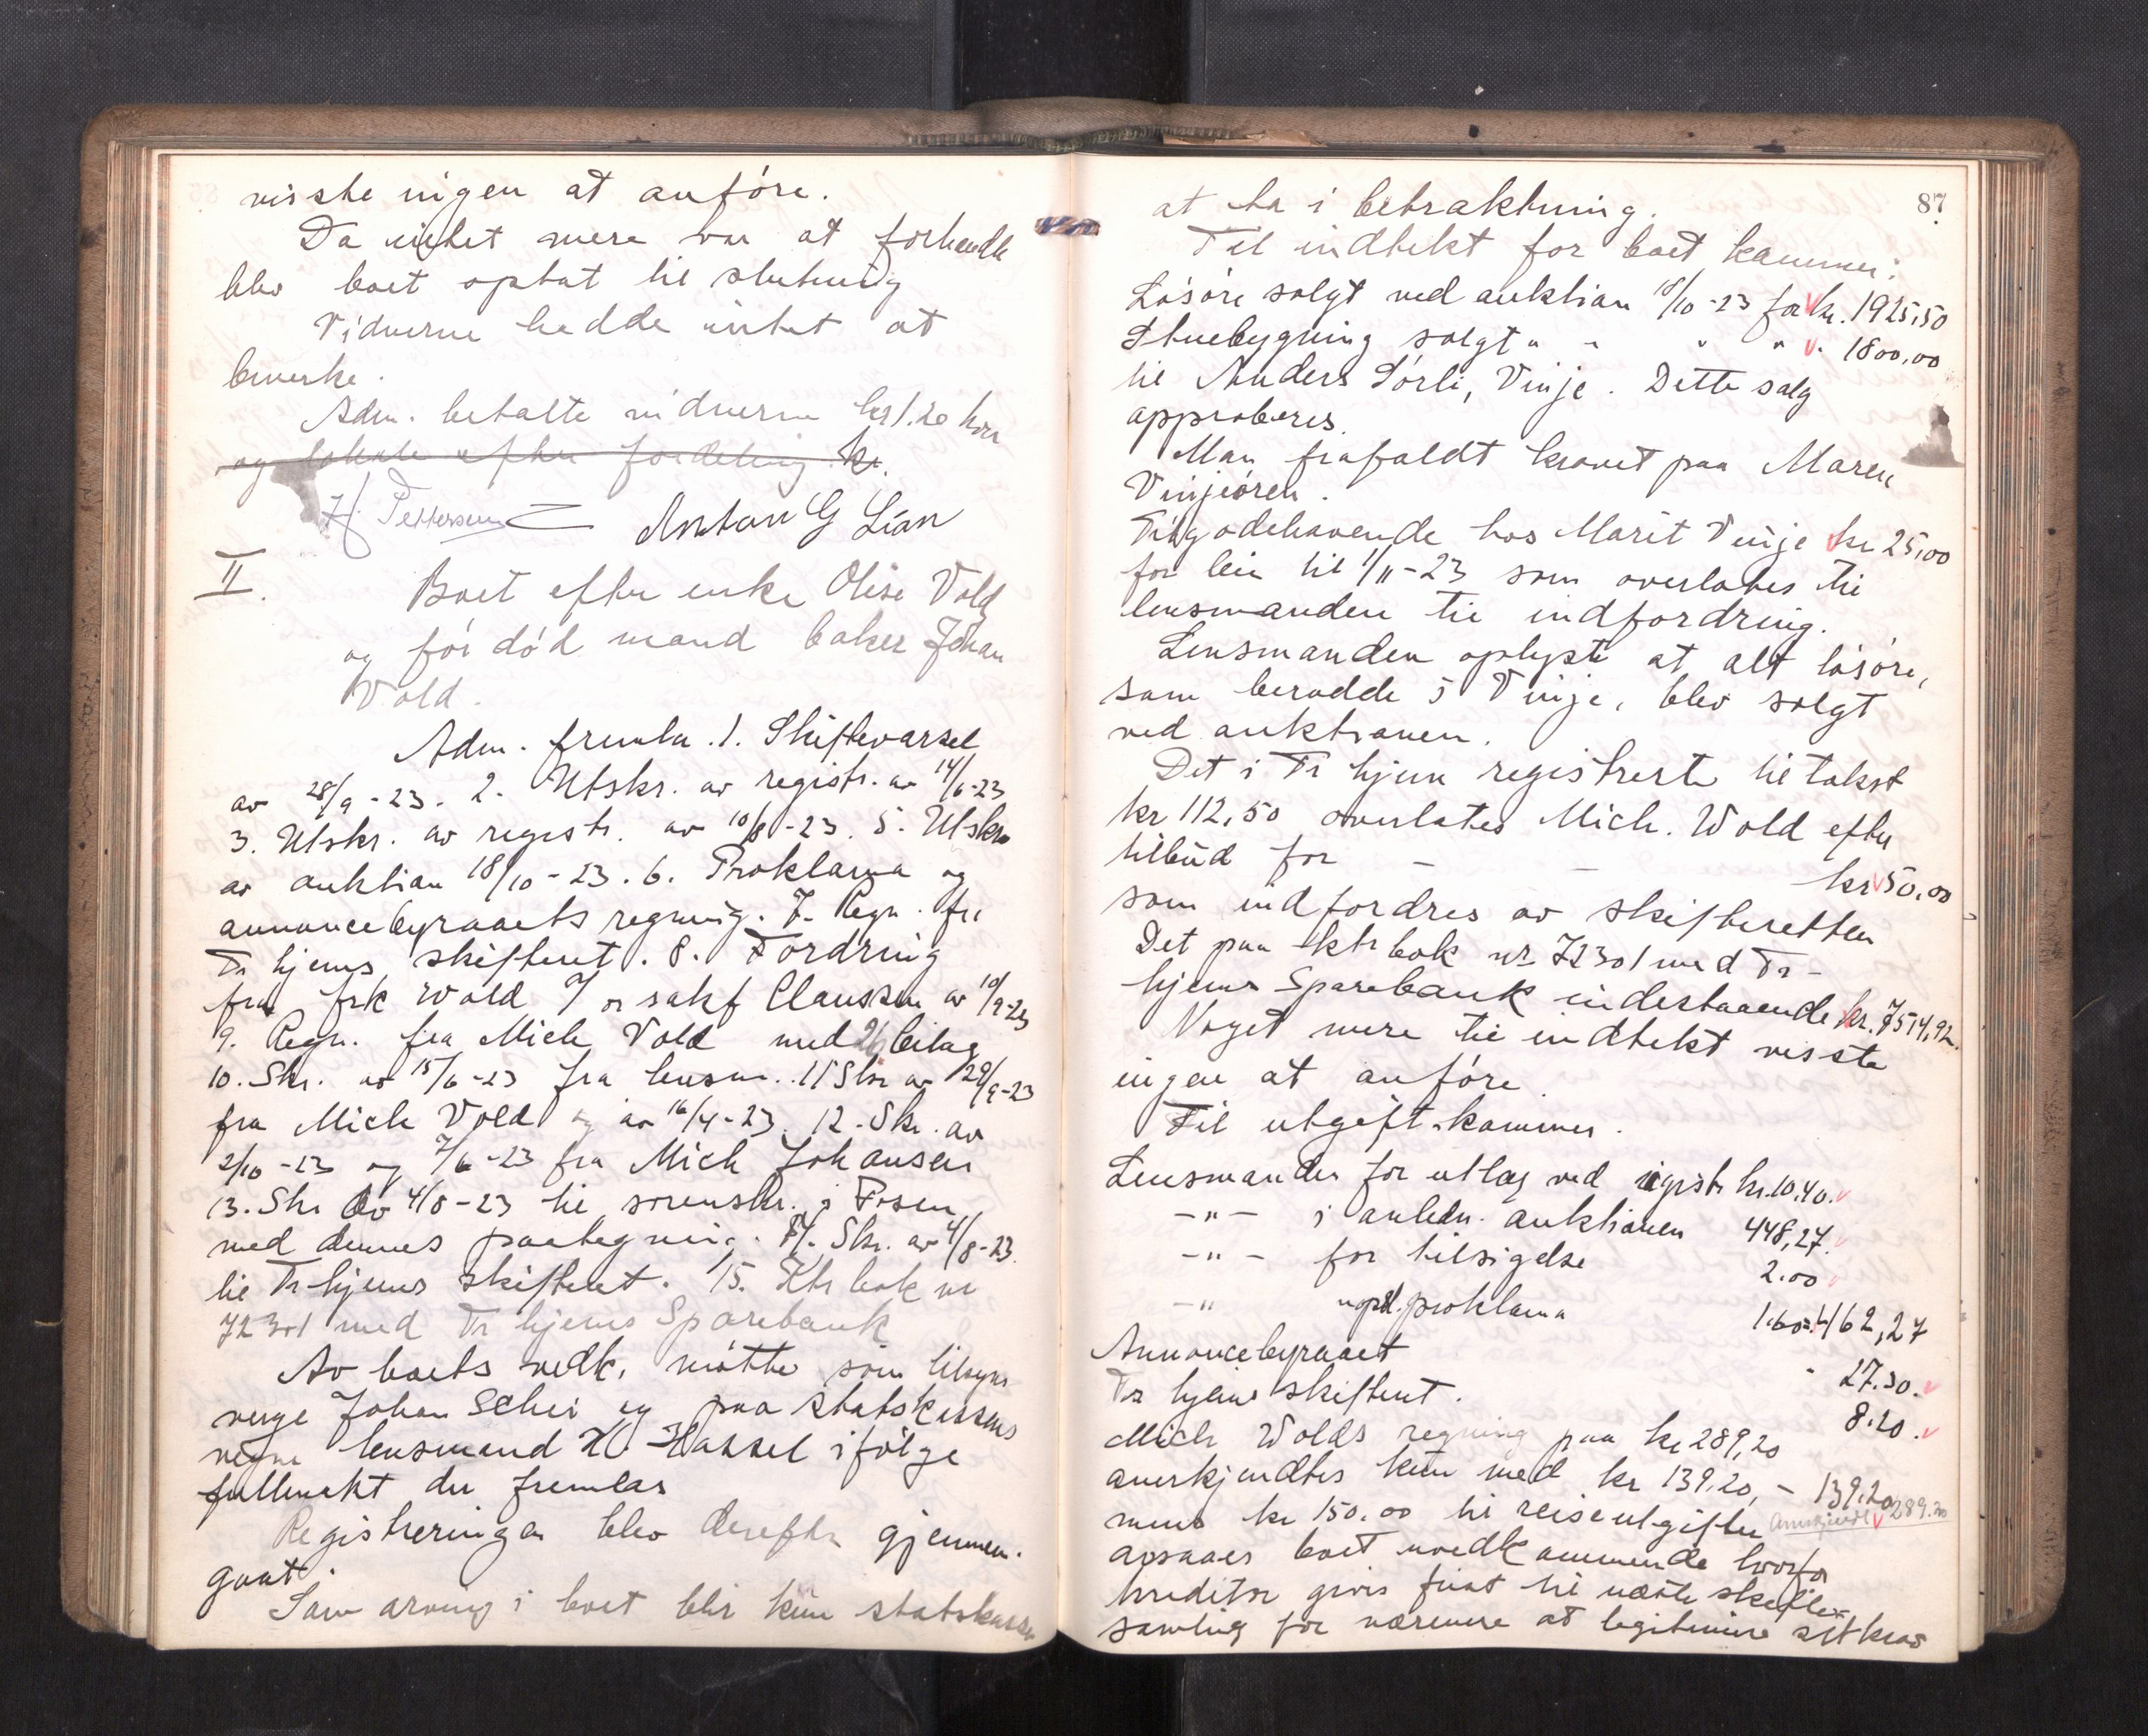 visste ingen at anføre.
Da intet mere var at forhandle
blev boet optat til slutning
Vidnerne hadde intet at
bemerke.
Adm. betalte vidnerne kr 1.20 hver
og lokale efter fordeling kr.
H Pettersen Anton G Lian
II.
Boet efter enke Olise Vold
og før død mand baker Johan
Vold.
Adm. fremla. 1. Skiftevarsel
av 28/9-23. 2. Utskr. av registr. av 14/6-23
3. Utskr. av registr. av 10/8-23. 5. Utskr
av auktion 18/10-23. 6. Proklama og
annoncebyraaets regning. 7. Regn. fra
Tr hjems skifteret. 8. Fordring
fra frk Wold v/ or sakf Claussen av 10/9-23
9. Regn. fra Mich Vold med 26 bilag
10. Skr. av 15/6-23 fra lensm. 11 Skr av 29/9-23
fra Mich Vold og av 16/4-23. 12. Skr. av
2/10-23 og 7/6-23 fra Mich Johansen
13. Skr av 4/8-23 til sorenskr. i Fosen
med dennes paategning. 14. Skr. av 4/8-23
til Tr-hjems skifteret. 15. Ktr bok nr
72301 med Tr hjems Sparebank
Av boets vedk. møtte som tilsyns
verge Johan Schei og paa statskassens
vegne lensmand H. Hassel ifølge
fullmakt der fremlas
Registreringen blev derefter gjennem-
gaat.
Som arving i boet blir kun statskassen
87
at ta i betraktning.
Til indtekt for boet kommer:
Løsøre solgt ved auktion 18/10-23 for kr. 1925,50
Stuebygning solgt " " " " 1800,00
til Anders Sørli, Vinje. Dette salg
approberes.
Man frafaldt kravet paa Maren
Vinjeøren.
Tilgodehavende hos Marit Vinje kr 25,00
for leie til 1/11-23 som overlates til
lensmanden til indfordring.
Lensmanden oplyste at alt løsøre,
som berodde i Vinje, blev solgt
ved auktionen.
Det i Tr hjem registrerte til takst
kr 112,50 overlates Mich. Wold efter
tilbud for - - kr 50,00
som indfordres av skifteretten
Det paa ktr bok nr 72301 med Tr-
hjems Sparebank indestaaende kr. 7514,92.
Noget mere til indtekt visste
ingen at anføre
Til utgift kommer.
Lensmanden for utlæg ved registr kr. 10.40.
-"- i anledn. auktionen 448,27.
-"- for tilsigelse 2.00
-" opsl. proklama 1.60 = 462,27
Annoncebyraaet " 27.30.
Tr hjems skifteret. 8.20.
Mich Wolds regning paa kr 289,20
anerkjendtes kun med kr 139.20, - 139.20
mens kr 150.00 til reiseutgifter anerkjendt 289.20
ansaaes boet uvedkommende hvorfor
kreditor givis frist til næste skifte-
samling for nærmere at legitimere sit krav